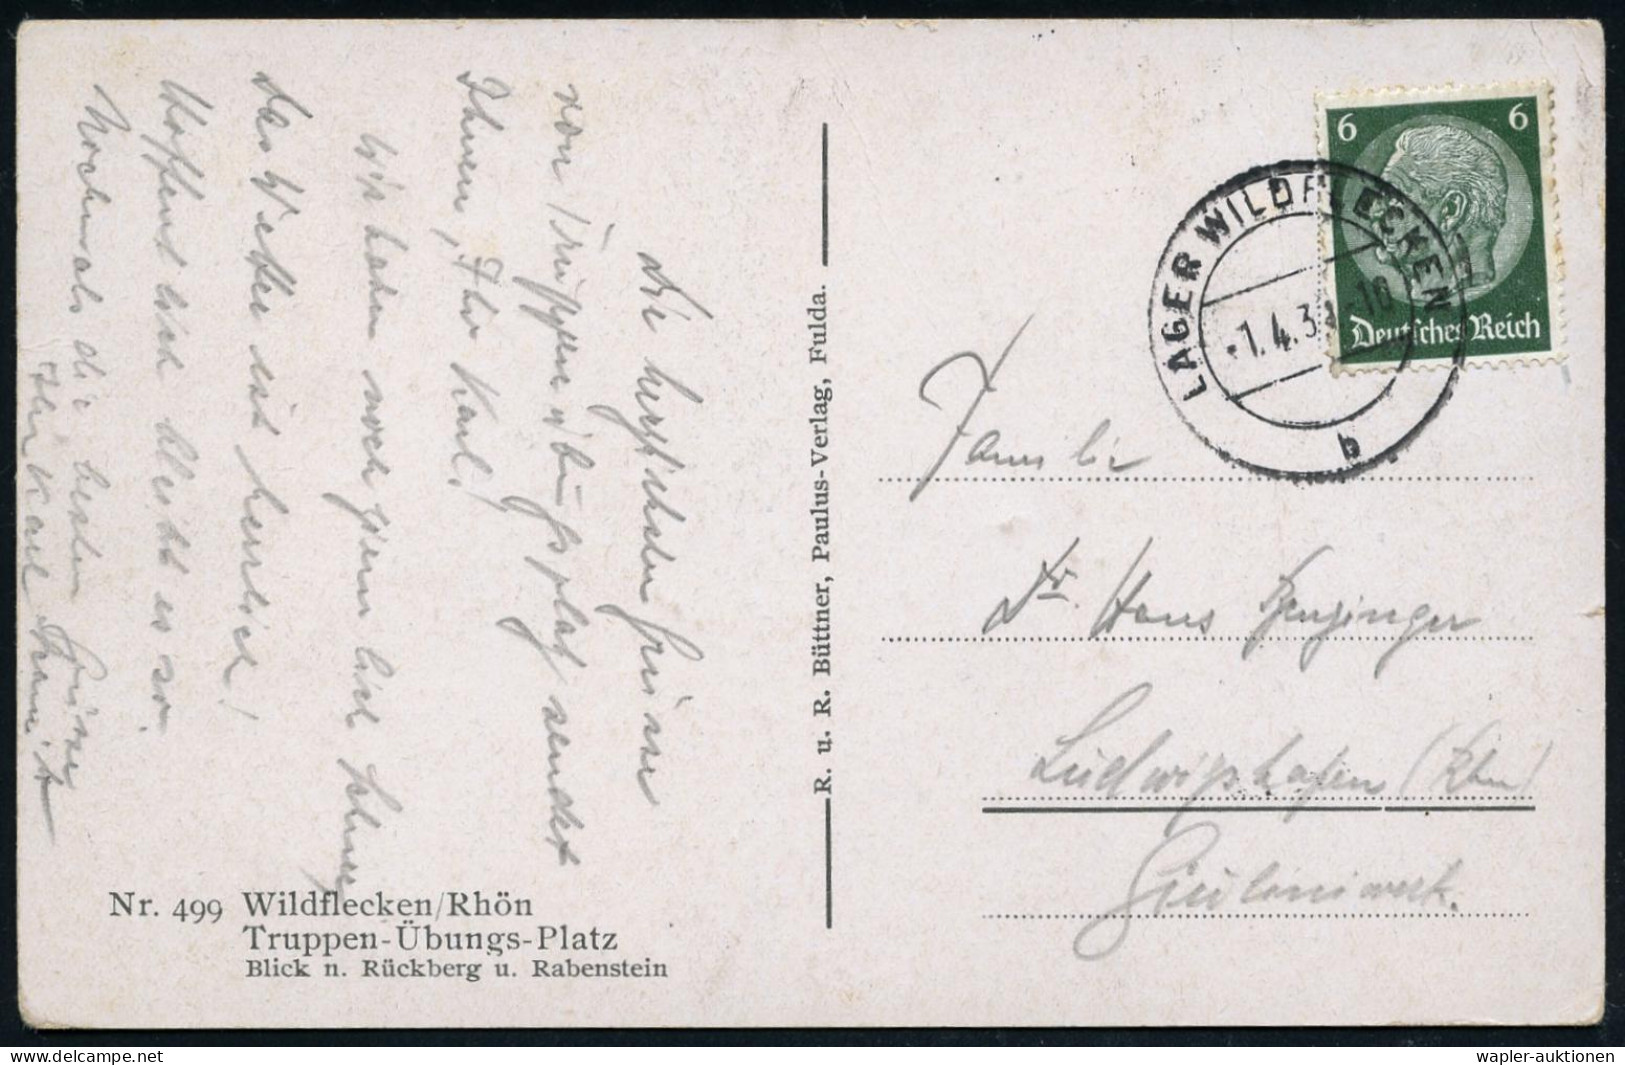 Die herzlichsten Grüsse
vom Truppenübungsplatz sendet
Ihnen, Ihr Karl.
Wir haben noch
das Wetter ist herrlich!
Hoffentlich bleibt es so.
Nochmals die besten Grüsse
Ihr Karl
Nr. 499 Wildflecken/Rhön
Truppen-Übungs-Platz
Blick n. Rückberg u. Rabenstein
R. u. R. Büttner, Paulus-Verlag, Fulda.
6 6
Deutsches Reich
LAGER WILDFLECKEN
-1.4.3
b
Familie
Dr. Hans
Ludwigshafen (Rhein)
delcampe.net
wapler-auktionen